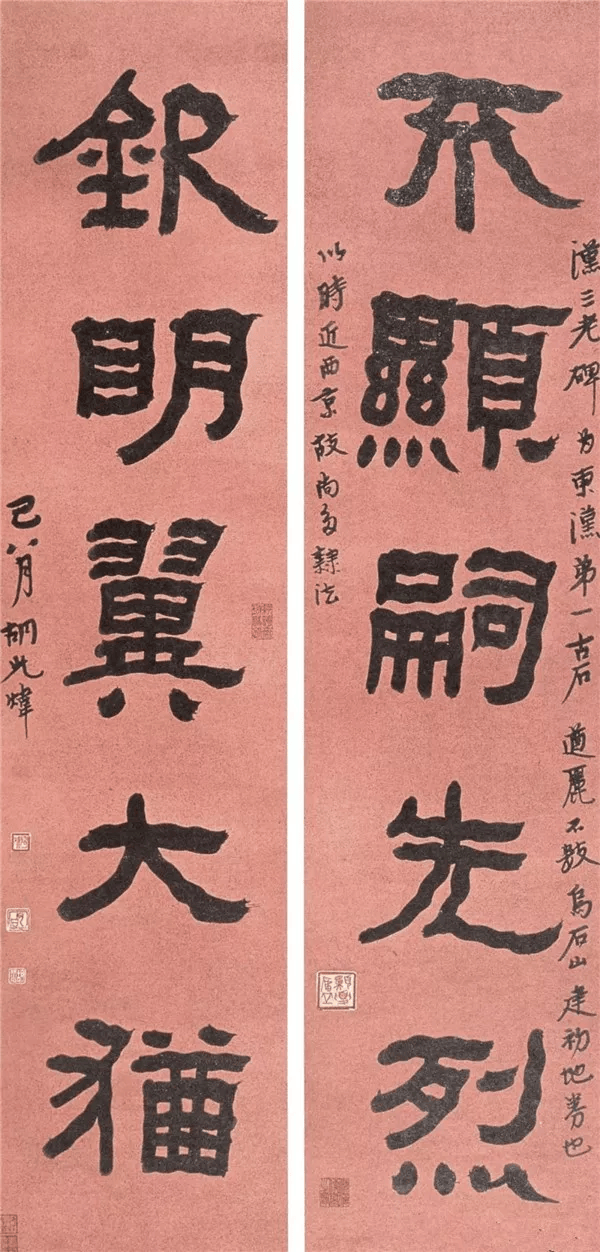 漢三老碑为東漢弟一古石遒麗不數烏石山建初地券也
不顯嗣先烈
以時近西京故尚多隸法
欽明翼大猶
巳八月胡此煒